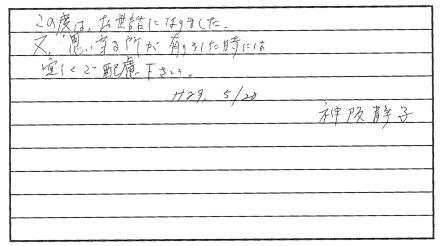 この度は、お世話になりました.
又、思い当る所が有りました時には
宜しくご配慮下さい。
H29, 5/28
神阪静子